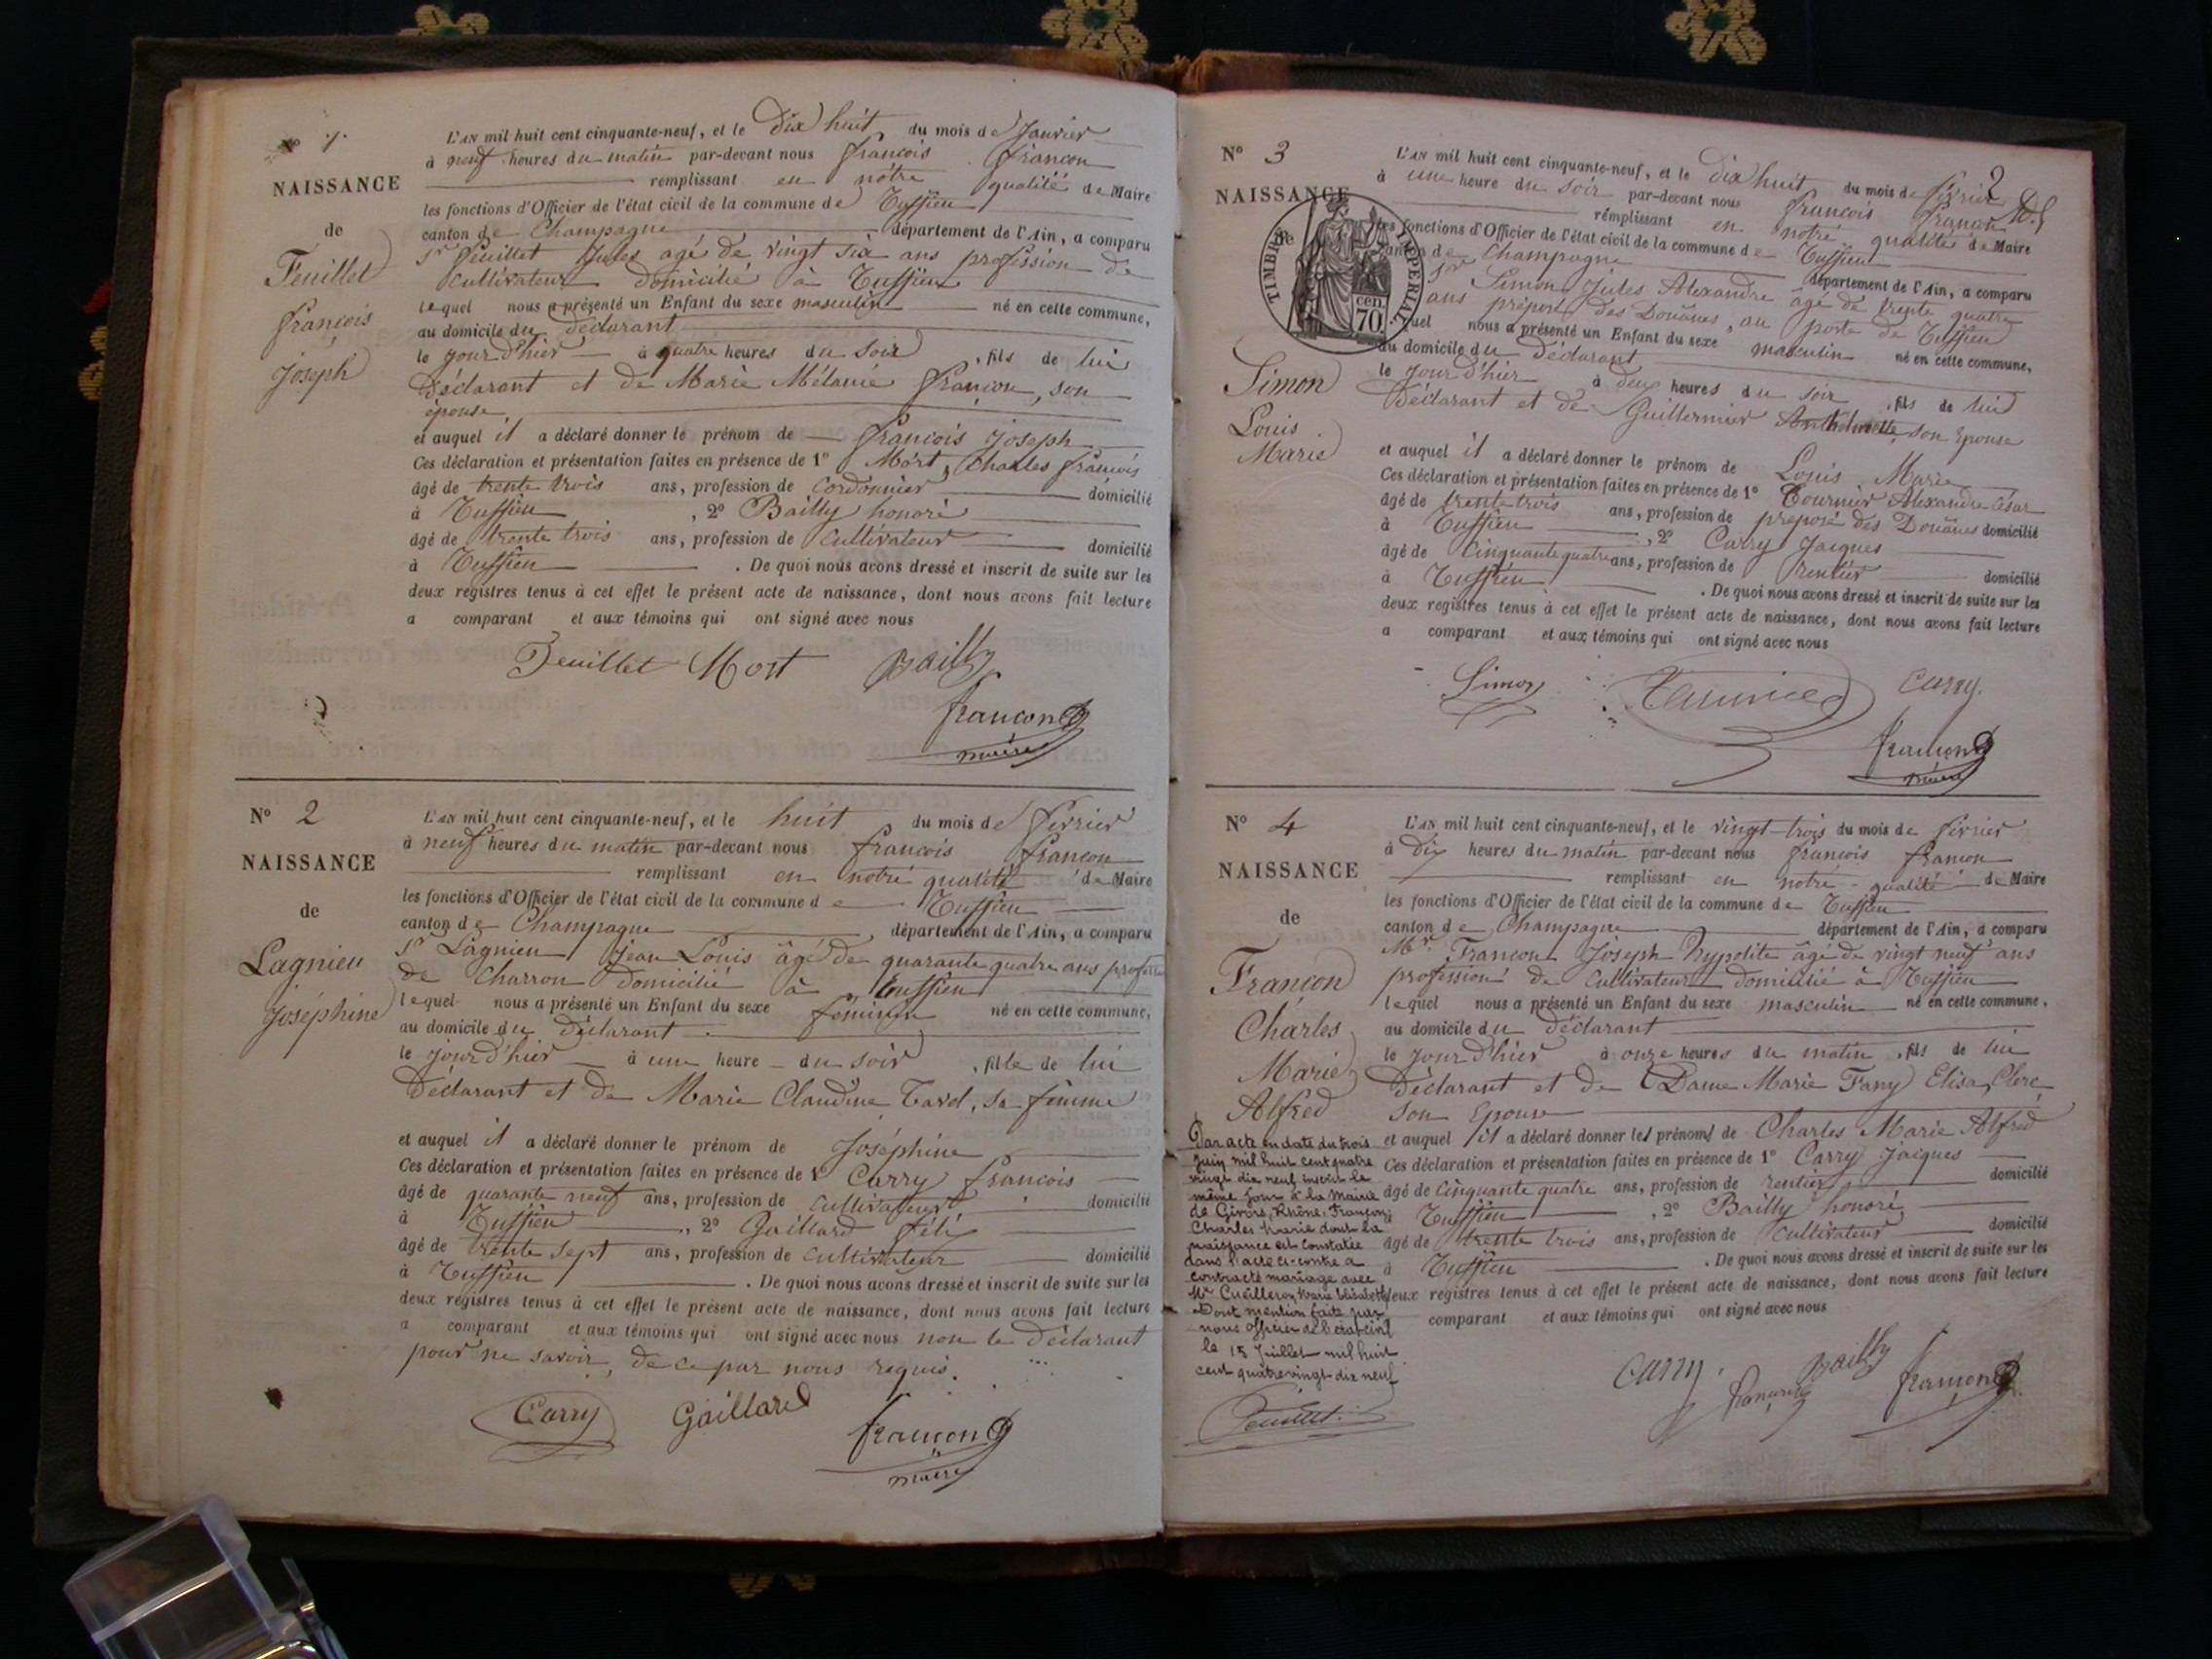 N° 1.
NAISSANCE
de
Feuillet
françois
Joseph
L'AN mil huit cent cinquante-neuf, et le Dix huit du mois de Janvier
à neuf heures du matin par-devant nous françois françon
remplissant en notre qualité de Maire
les fonctions d'Officier de l'état civil de la commune de Cuffieu
canton de Champagne département de l'Ain, a comparu
Sr feuillet Jules agé de vingt six ans profession de
Cultivateur domicilié à Cuffieu
lequel nous a présenté un Enfant du sexe masculin né en cette commune,
au domicile du déclarant
le jour d'hier à quatre heures du soir , fils de lui
Déclarant et de Marie Mélanie françon, son
épouse,
et auquel il a déclaré donner le prénom de françois joseph
Ces déclaration et présentation faites en présence de 1° Mort, Charles françois
âgé de trente trois ans, profession de cordonnier domicilié
à Cuffieu , 2° Bailly honoré
âgé de trente trois ans, profession de Cultivateur domicilié
à Cuffieu . De quoi nous avons dressé et inscrit de suite sur les
deux registres tenus à cet effet le présent acte de naissance, dont nous avons fait lecture
a comparant et aux témoins qui ont signé avec nous
Feuillet Mort Bailly
françon
maire
N° 2
NAISSANCE
de
Lagnieu
Joséphine
L'AN mil huit cent cinquante-neuf, et le huit du mois de février
à neuf heures du matin par-devant nous françois françon
remplissant en notre qualité de Maire
les fonctions d'Officier de l'état civil de la commune de Cuffieu
canton de Champagne département de l'Ain, a comparu
Sr Lagnieu Jean Louis âgé de quarante quatre ans
de Charron domicilié à Cuffieu
lequel nous a présenté un Enfant du sexe féminin né en cette commune,
au domicile du déclarant
le jour d'hier à une heure du soir , fille de lui
Déclarant et de Marie Claudine Tavel, sa femme
et auquel il a déclaré donner le prénom de Joséphine
Ces déclaration et présentation faites en présence de 1° Carry françois
âgé de quarante neuf ans, profession de Cultivateur domicilié
à Cuffieu , 2° Gaillard féli
âgé de trente sept ans, profession de cultivateur domicilié
à Cuffieu . De quoi nous avons dressé et inscrit de suite sur les
deux registres tenus à cet effet le présent acte de naissance, dont nous avons fait lecture
a comparant et aux témoins qui ont signé avec nous non le Déclarant
pour ne savoir, de ce par nous requis.
Carry Gaillard
françon
maire
2
N° 3
NAISSANCE
de
TIMBRE IMPERIAL
70 cen.
Simon
Louis
Marie
L'AN mil huit cent cinquante-neuf, et le Dix huit du mois de février
à une heure du soir par-devant nous françois françon
remplissant en notre qualité de Maire
les fonctions d'Officier de l'état civil de la commune de Cuffieu
canton de Champagne département de l'Ain, a comparu
Sr Simon Jules Alexandre âgé de trente quatre
ans préposé des Douanes, au poste de Cuffieu
lequel nous a présenté un Enfant du sexe masculin né en cette commune,
au domicile du Déclarant
le jour d'hier à deux heures du soir , fils de lui
Déclarant et de Guillermier son Epouse
et auquel il a déclaré donner le prénom de Louis Marie
Ces déclaration et présentation faites en présence de 1° Tournier Alexandre César
âgé de trente trois ans, profession de préposé des Douanes domicilié
à Cuffieu , 2° Carry Jacques
âgé de Cinquante quatre ans, profession de rentier domicilié
à Cuffieu . De quoi nous avons dressé et inscrit de suite sur les
deux registres tenus à cet effet le présent acte de naissance, dont nous avons fait lecture
a comparant et aux témoins qui ont signé avec nous
Simon Carry.
françon
maire
N° 4
NAISSANCE
de
Françon
Charles
Marie
Alfred
L'AN mil huit cent cinquante-neuf, et le vingt-trois du mois de février
à Dix heures du matin par-devant nous françois françon
remplissant en notre qualité de Maire
les fonctions d'Officier de l'état civil de la commune de Cuffieu
canton de Champagne département de l'Ain, a comparu
Mr Françon Joseph hypolite âgé de vingt neuf ans
profession de Cultivateur domicilié à Cuffieu
lequel nous a présenté un Enfant du sexe masculin né en cette commune,
au domicile du déclarant
le jour d'hier à onze heures du matin , fils de lui
Déclarant et de Dame Marie Fany Elisa Clerc
son Epouse
et auquel il a déclaré donner les prénoms de Charles Marie Alfred
Ces déclaration et présentation faites en présence de 1° Carry Jacques
âgé de Cinquante quatre ans, profession de rentier domicilié
à Cuffieu , 2° Bailly honoré
âgé de trente trois ans, profession de Cultivateur domicilié
à Cuffieu . De quoi nous avons dressé et inscrit de suite sur les
deux registres tenus à cet effet le présent acte de naissance, dont nous avons fait lecture
a comparant et aux témoins qui ont signé avec nous
Carry françon Bailly françon
Par acte en date du trois
juin mil huit cent quatre
vingt dix neuf inscrit le
même jour à la Mairie
de Givors, Rhône, Françon
Charles Marie dont la
naissance est constatée
dans l'acte ci-contre a
contracté mariage avec
Cuilleron Marie Elisabeth
Dont mention faite par
nous officier de l'état civil
le 15 Juillet mil huit
cent quatrevingt-dix neuf